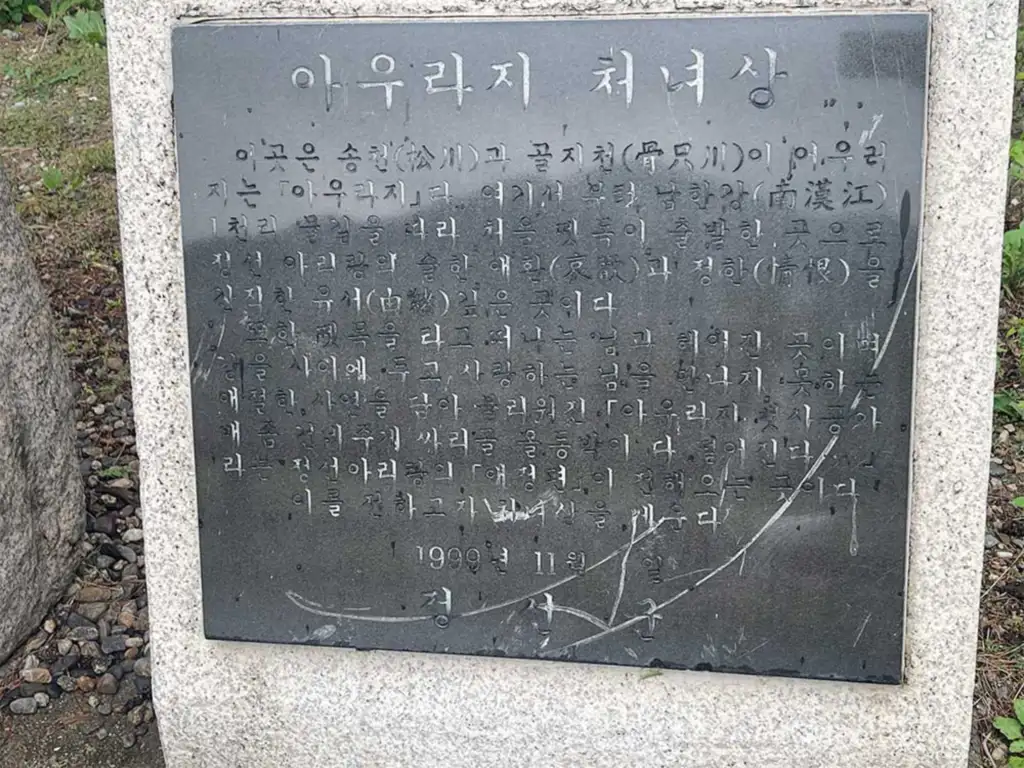 아우라지 처녀상
이곳은 송천(松川)과 골지천(骨只川)이 어우러
지는「아우라지」다. 여기서 부터 남한강(南漢江)
1천리 물길을 따라 처음 뗏목이 출발한 곳으로
정선 아리랑의 숱한 애환(哀歡)과 정한(情恨)을
간직한 유서(由緖)깊은 곳이다
또한 뗏목을 타고 떠나는 님과 헤어진 곳이며
강을 사이에 두고 사랑하는 님을 만나지 못하는
애절한 사연을 담아 불리워진「아우라지 뱃사공아
배좀 건네주게 싸리골 올동박이 다 떨어진다 …」
라는 정선아리랑의「애정편」이 전해오는 곳이다
이를 전하고자 처녀상을 세운다
1999년 11월 일
정 선 군